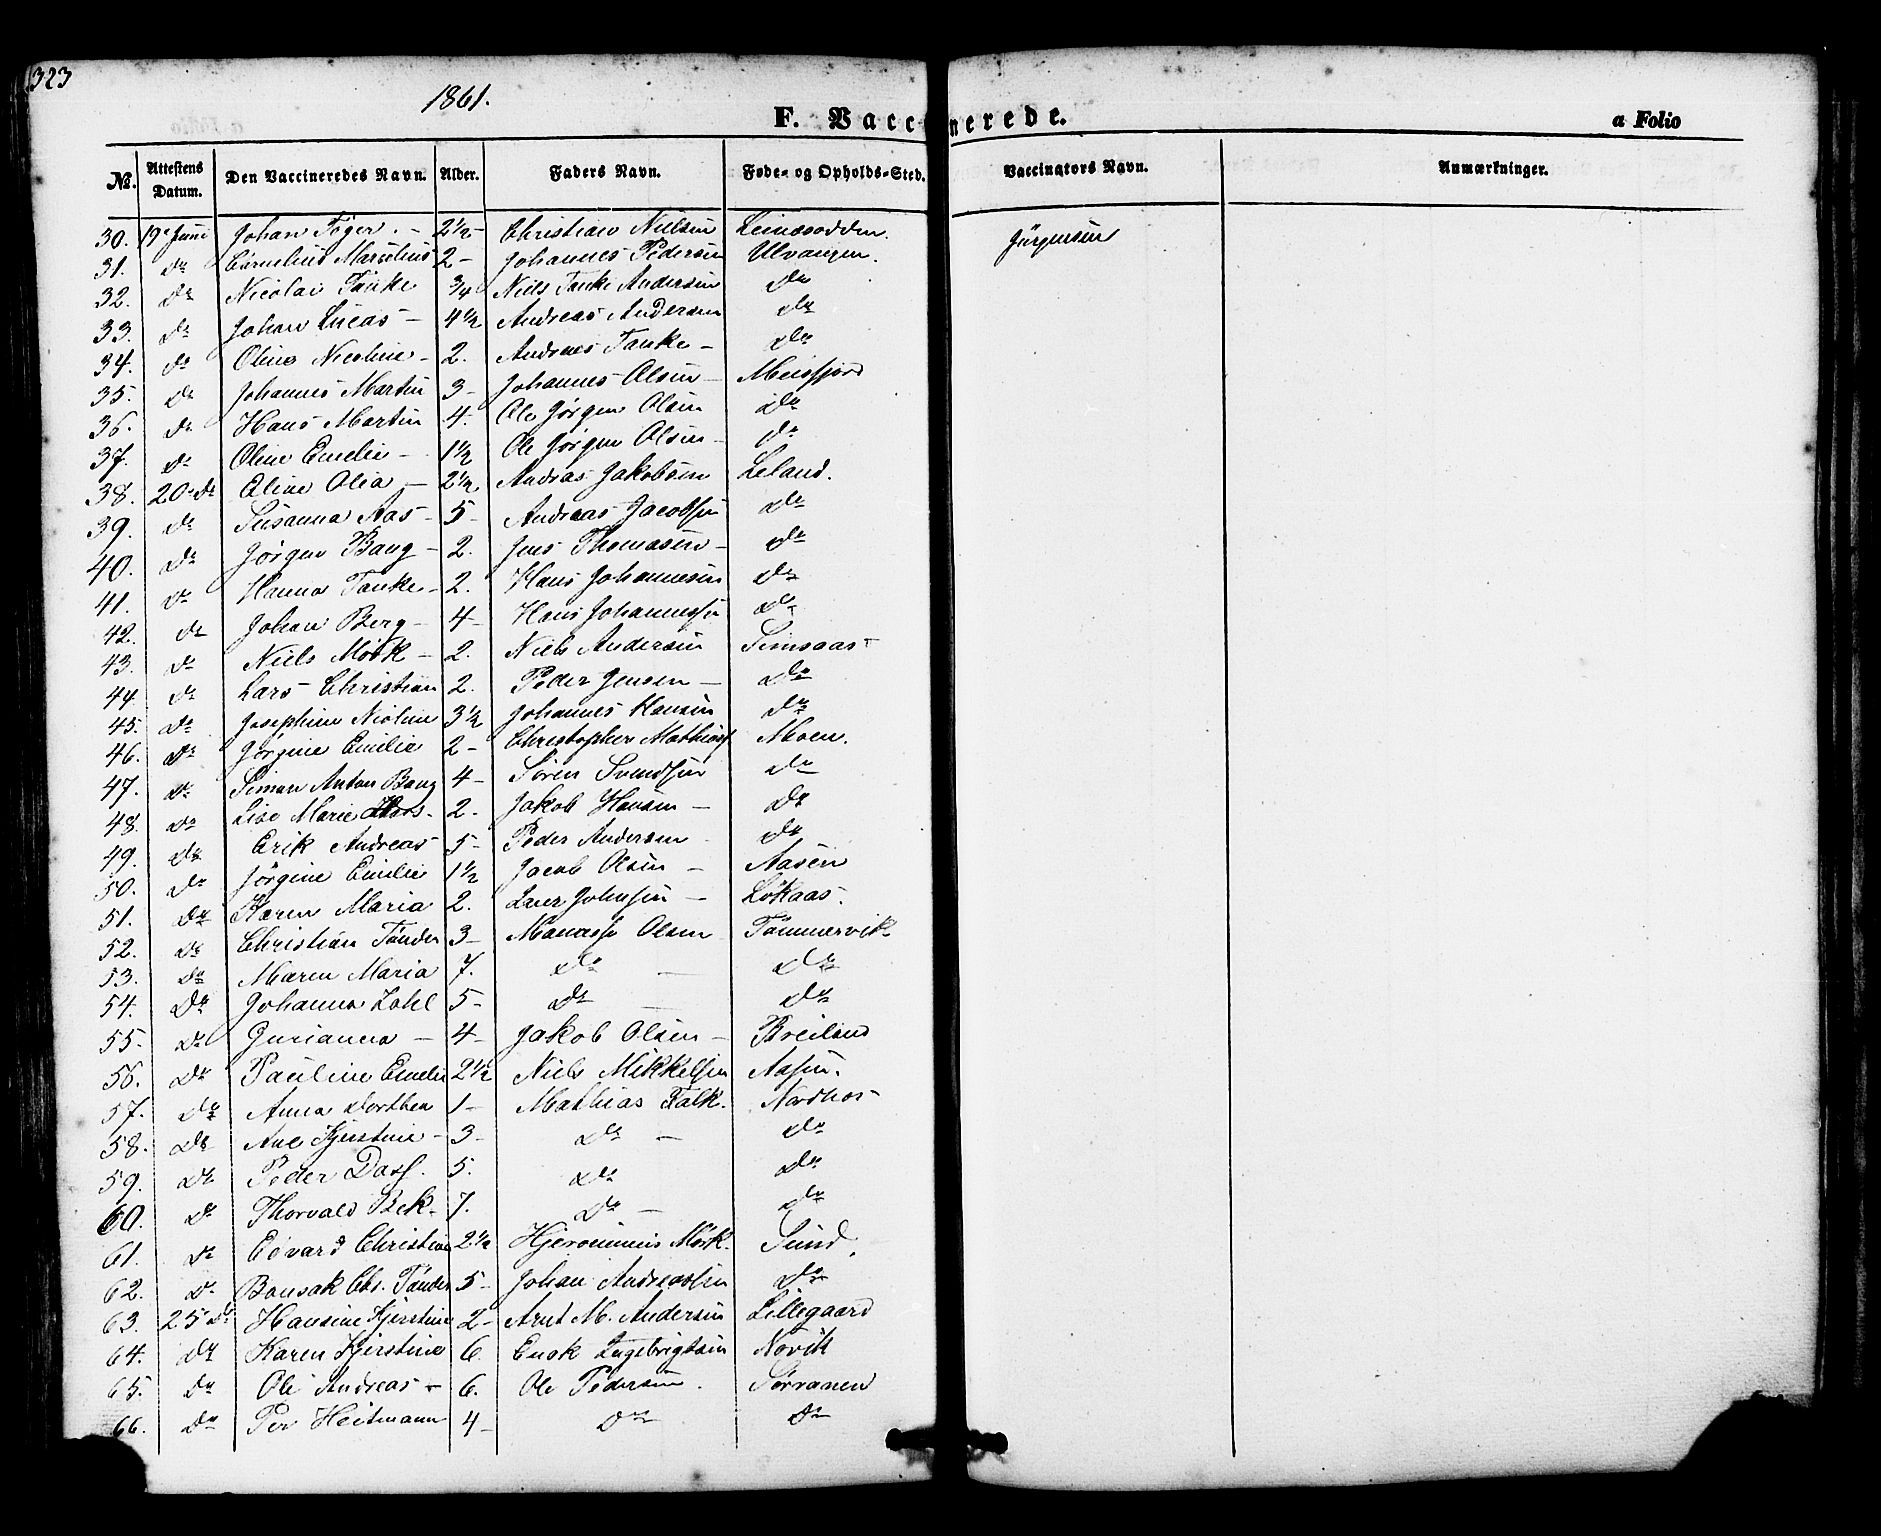 323
1861.
F. Vaccinerede.
a Folio
No. Attestens Datum. Den Vaccineredes Navn. Alder. Faders Navn. Føde- og Opholds-Sted. Vaccinators Navn. Anmærkninger.
30. 19e Juni Johan Töger. - 2½ - Christian Nielsen Leinesodden. Jürgensen
31. do Cornelius Marselius 2 - Johannes Pedersen Ulvangen.
32. do Nicolai Tanke ¾ Niels Tanke Andersen do
33. do Johan Lucas - 4½ Andreas Andersen do
34. do Oline Nicoline - 2. Andreas Tanke - do
35. do Johannes Martin 3 - Johannes Olsen - Meisfjord
36. do Hans Martin 4. Ole Jørgen Olsen do
37. do Oline Emelie - 1½ Ole Jørgen Olsen - do
38. 20e do Eline Olea - 2½ Andras Jakobsen Leland.
39. do Susanna Aas - 5 - Andreas Jacobsen do
40. do Jørgen Bang - 2. Jens Thomasen - do
41. do Hanna Tanke - 2. Hans Johannesen do
42. do Johan Berg - 4 - Hans Johannessen do
43. do Niels Mörk - 2. Niels Andersen Simsaas -
44. do Lars Christian 2. Peder Jensen - do
45. do Josephine Nicoline 3½ Johannes Hansen do
46. do Jørgine Emilie 2 - Christopher Mathias Moen.
47. do Simon Anton Bang 4 - Sören Svendsen do
48. do Lise Marie - 2. Jakob Hansen - do
49. do Erik Andreas 5 - Peder Andersen do
50. do Jørgine Emilie 1½ Jacob Olsen - Aasen
51. do Karen Maria 2. Johnsen - Lökaas.
52. do Christian Tönder 3 - Manasse Olsen Tömmervik
53. do Maren Maria 7. do - do
54. do Johanna Zahl 5 - do do
55. do Gurianna - 4 - Jakob Olsen - Breiland
56. do Pauline Emelie 2½ Niels Mikkelsen Aasen.
57. do Anna Dorthea 1 - Mathias Falk. Nordhus -
58. do Ane Kjerstine - 3 - do - do
59. do Peder Dass. 5. do do
60. do Thorvald Bek - 7. do - do
61. do Edvard Christian 2½ Hjeronimus Mörk. Sund.
62. do Bonsak Chr. Tönder 5 - Johan Andreassen do
63. 25e do Hansine Kjerstine 2 - Arnt M. Andersen Lillegaard
64. do Karen Kjerstine 6. Enok Ingebrigtsen Novik
65. do Ole Andreas - 6. Ole Pedersen. Sørranen
66. do Per Heitmann 4 - do do